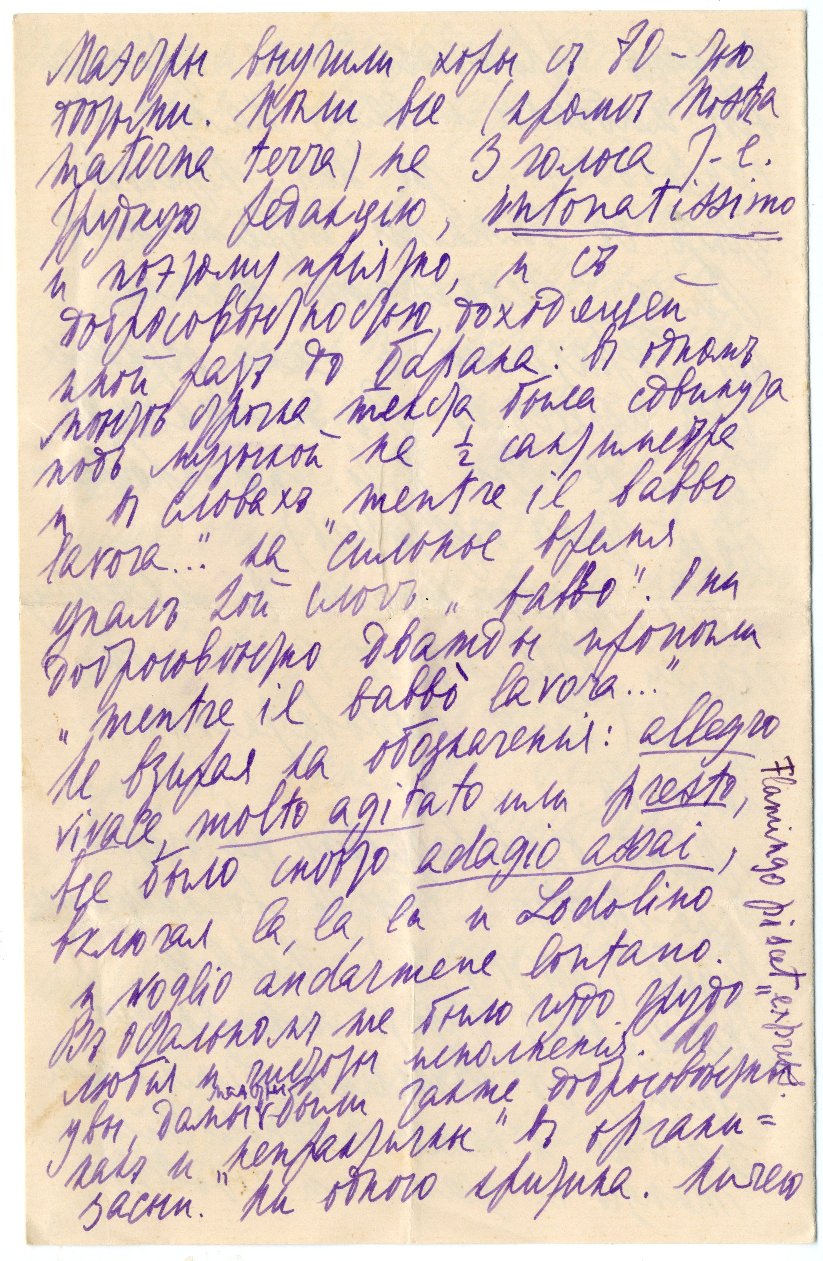 Маэстры выучили хоры съ 70-тью
дѣтьми. Пѣли все (кромѣ Nostra
materna terra) на 3 голоса, т-е.
трудную редакцію, intonatissimo
и поэтому пріятно, и съ
добросовѣстностью, доходящей
иной разъ до барана: въ одномъ
мѣстѣ строка текста была сдвинута
подъ музыкой на ½ сантиметра
и въ словахъ „mentre il babbo
lavora..." на "сильное время
упалъ 2ой слогъ „babbo". Они
добросовѣстно дважды пропѣли
„mentre il babbò lavora..."
Не взирая на обозначенія: allegro
vivace, molto agitato или presto,
все было скоро adagio assai,
включая la, la, la и Lodolino
и voglio andarmene lontano.
Въ остальномъ же было чудо трудо=
любія и чистоты исполненія. Но,
увы, дамы были также добросовѣстны
какъ и "непрактичны" въ органи=
заціи. Ни одного критика. Ничего
Flamingo pisat